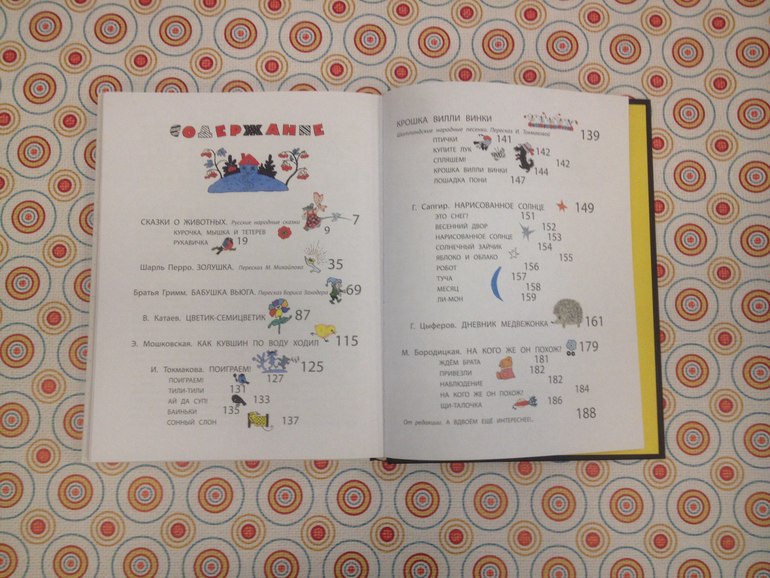 СОДЕРЖАНИЕ
СКАЗКИ О ЖИВОТНЫХ. Русские народные сказки 7
КУРОЧКА, МЫШКА И ТЕТЕРЕВ 9
РУКАВИЧКА 19
Шарль Перро. ЗОЛУШКА. Пересказ М. Михайлова 35
Братья Гримм. БАБУШКА ВЬЮГА. Пересказ Бориса Заходера 69
В. Катаев. ЦВЕТИК-СЕМИЦВЕТИК 87
Э. Мошковская. КАК КУВШИН ПО ВОДУ ХОДИЛ 115
И. Токмакова. ПОИГРАЕМ! 125
ПОИГРАЕМ! 127
ТИЛИ-ТИЛИ 131
АЙ ДА СУП! 133
БАИНЬКИ 135
СОННЫЙ СЛОН 137
КРОШКА ВИЛЛИ ВИНКИ
Шотландские народные песенки. Пересказ И. Токмаковой 139
ПТИЧКИ 141
КУПИТЕ ЛУК 142
СПЛЯШЕМ! 142
КРОШКА ВИЛЛИ ВИНКИ 144
ЛОШАДКА ПОНИ 147
Г. Сапгир. НАРИСОВАННОЕ СОЛНЦЕ 149
ЭТО СНЕГ? 151
ВЕСЕННИЙ ДВОР 152
НАРИСОВАННОЕ СОЛНЦЕ 153
СОЛНЕЧНЫЙ ЗАЙЧИК 154
ЯБЛОКО И ОБЛАКО 155
РОБОТ 156
ТУЧА 157
МЕСЯЦ 158
ЛИ-МОН 159
Г. Цыферов. ДНЕВНИК МЕДВЕЖОНКА 161
М. Бородицкая. НА КОГО ЖЕ ОН ПОХОЖ? 179
ЖДЁМ БРАТА 181
ПРИВЕЗЛИ 182
НАБЛЮДЕНИЕ 182
НА КОГО ЖЕ ОН ПОХОЖ? 184
ЩИ-ТАЛОЧКА 186
От редакции. А ВДВОЁМ ЕЩЁ ИНТЕРЕСНЕЕ!.. 188